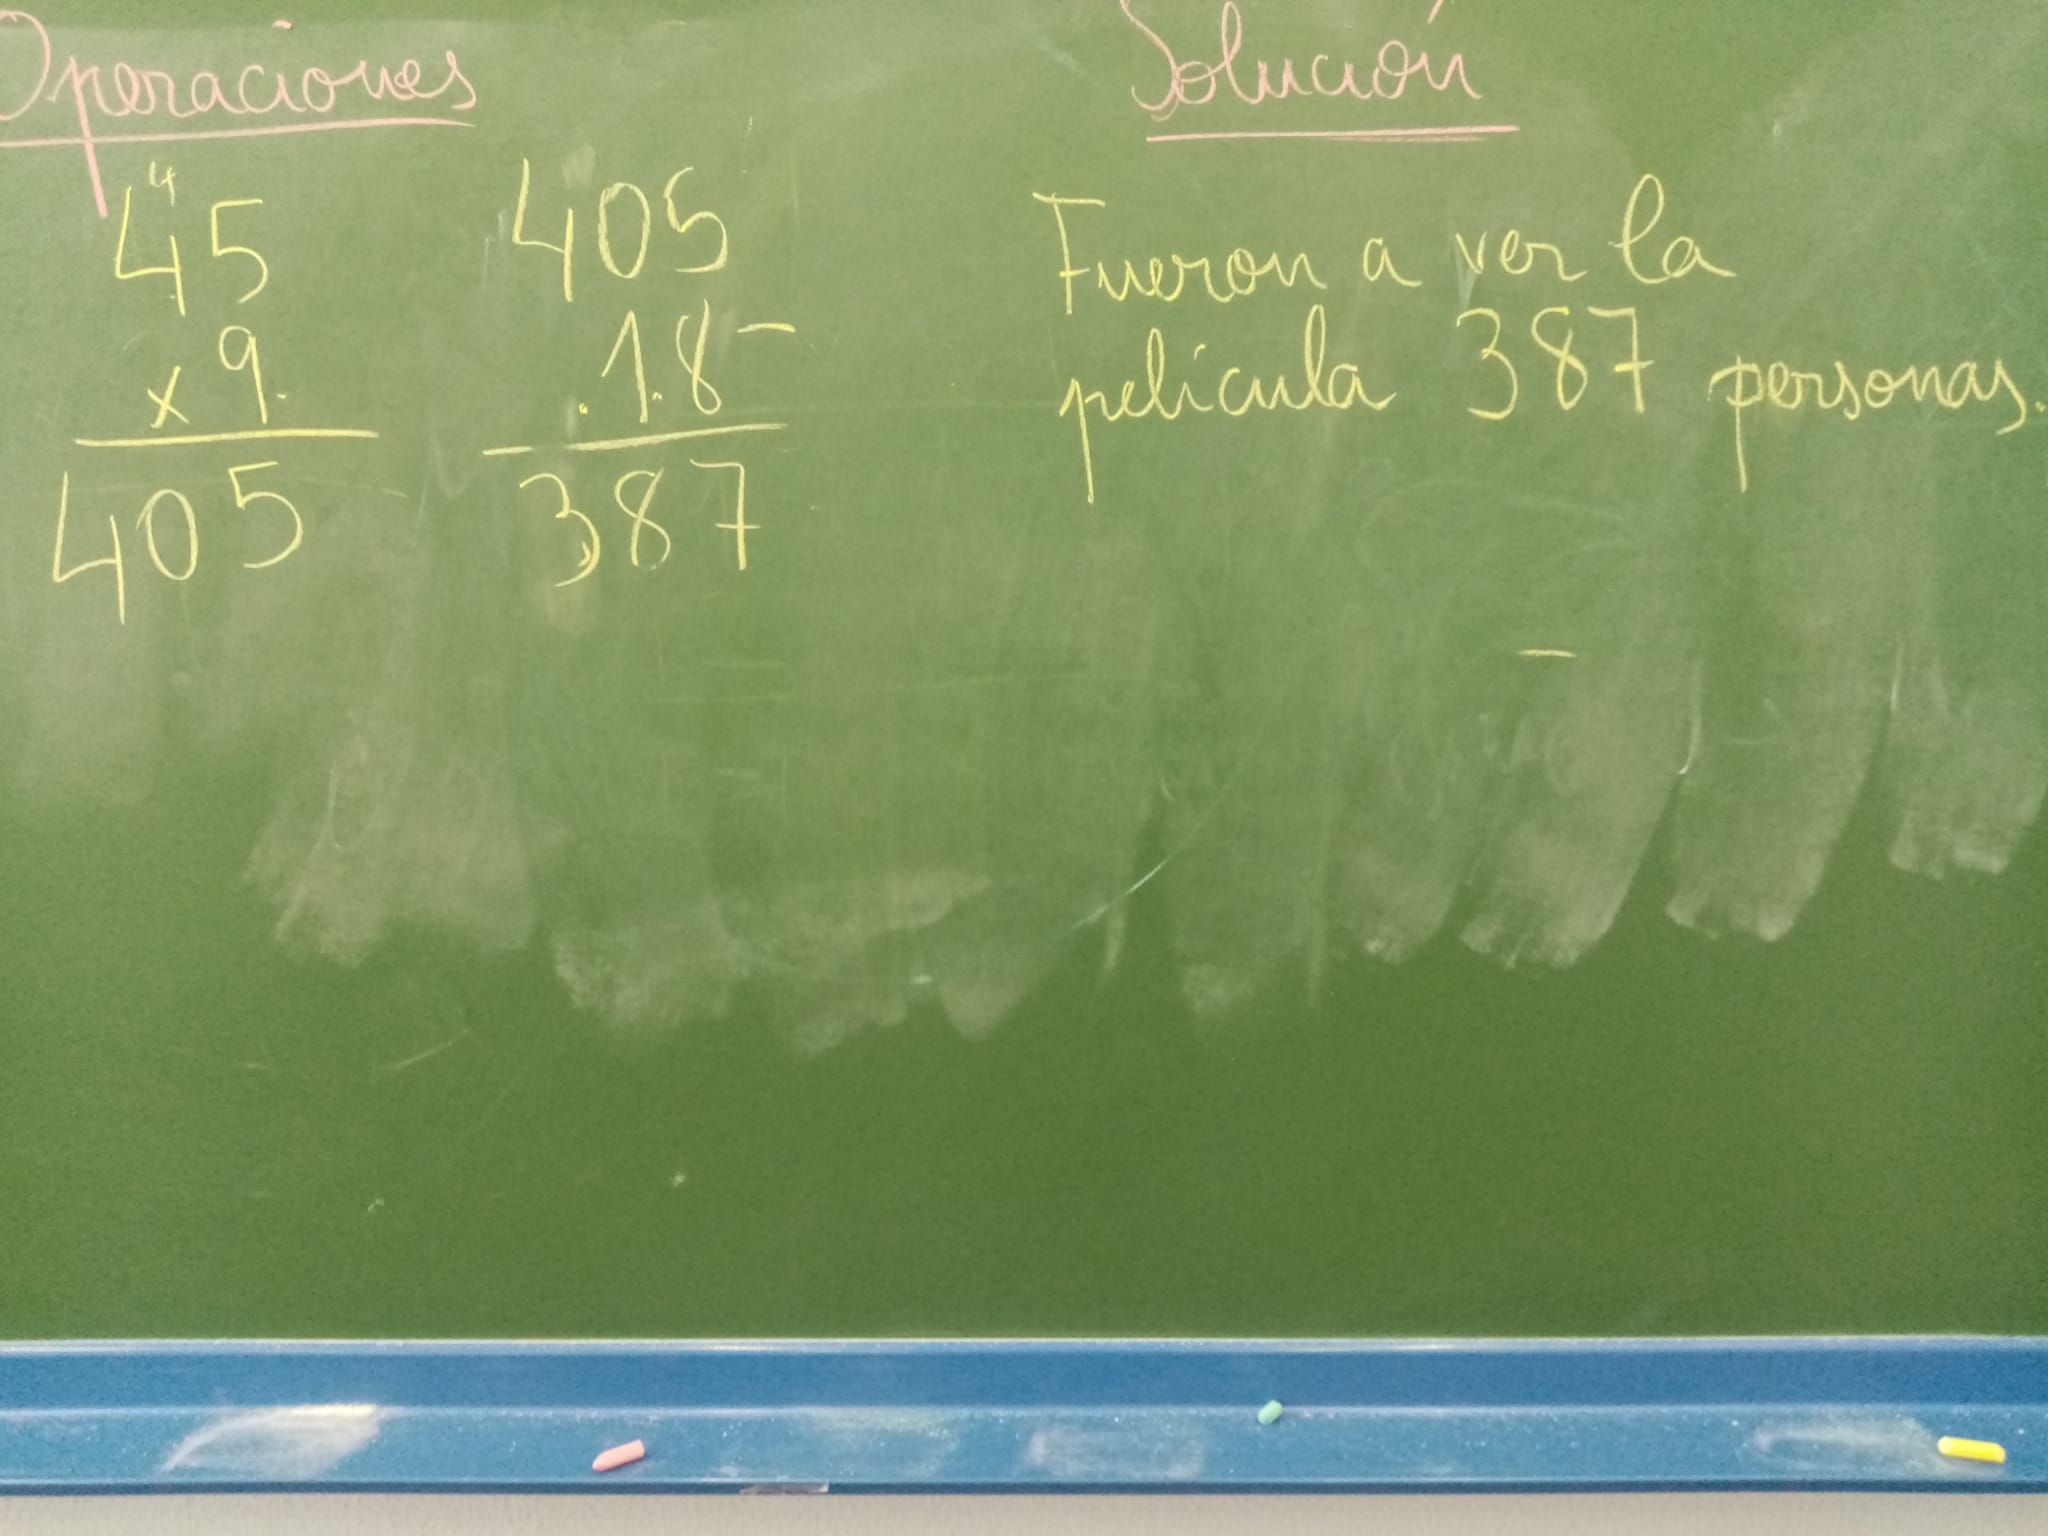 Operaciones
4
45
x 9
405
405
18 -
387
Solución
Fueron a ver la
película 387 personas.